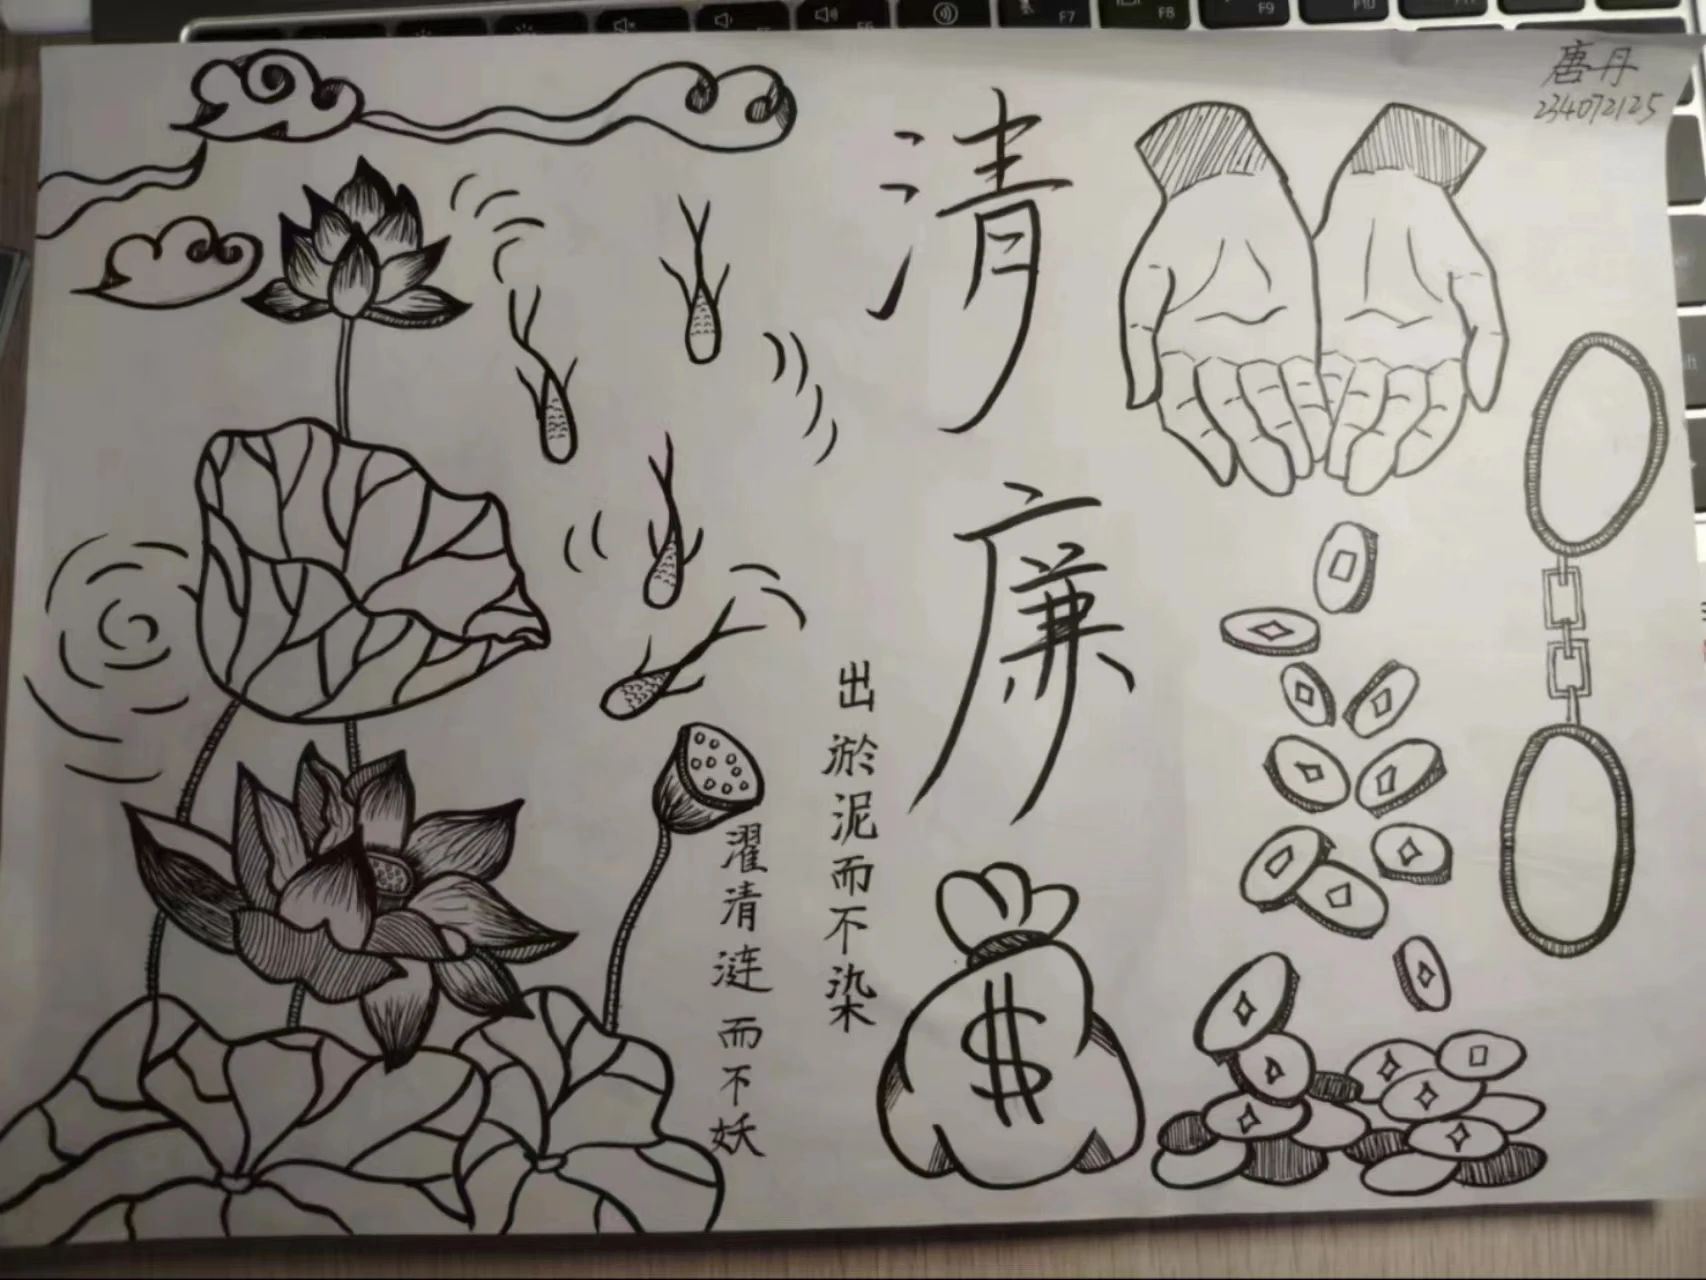 唐丹
234072125
清廉
出淤泥而不染
濯清涟而不妖
$
F7
F8
F9
F10